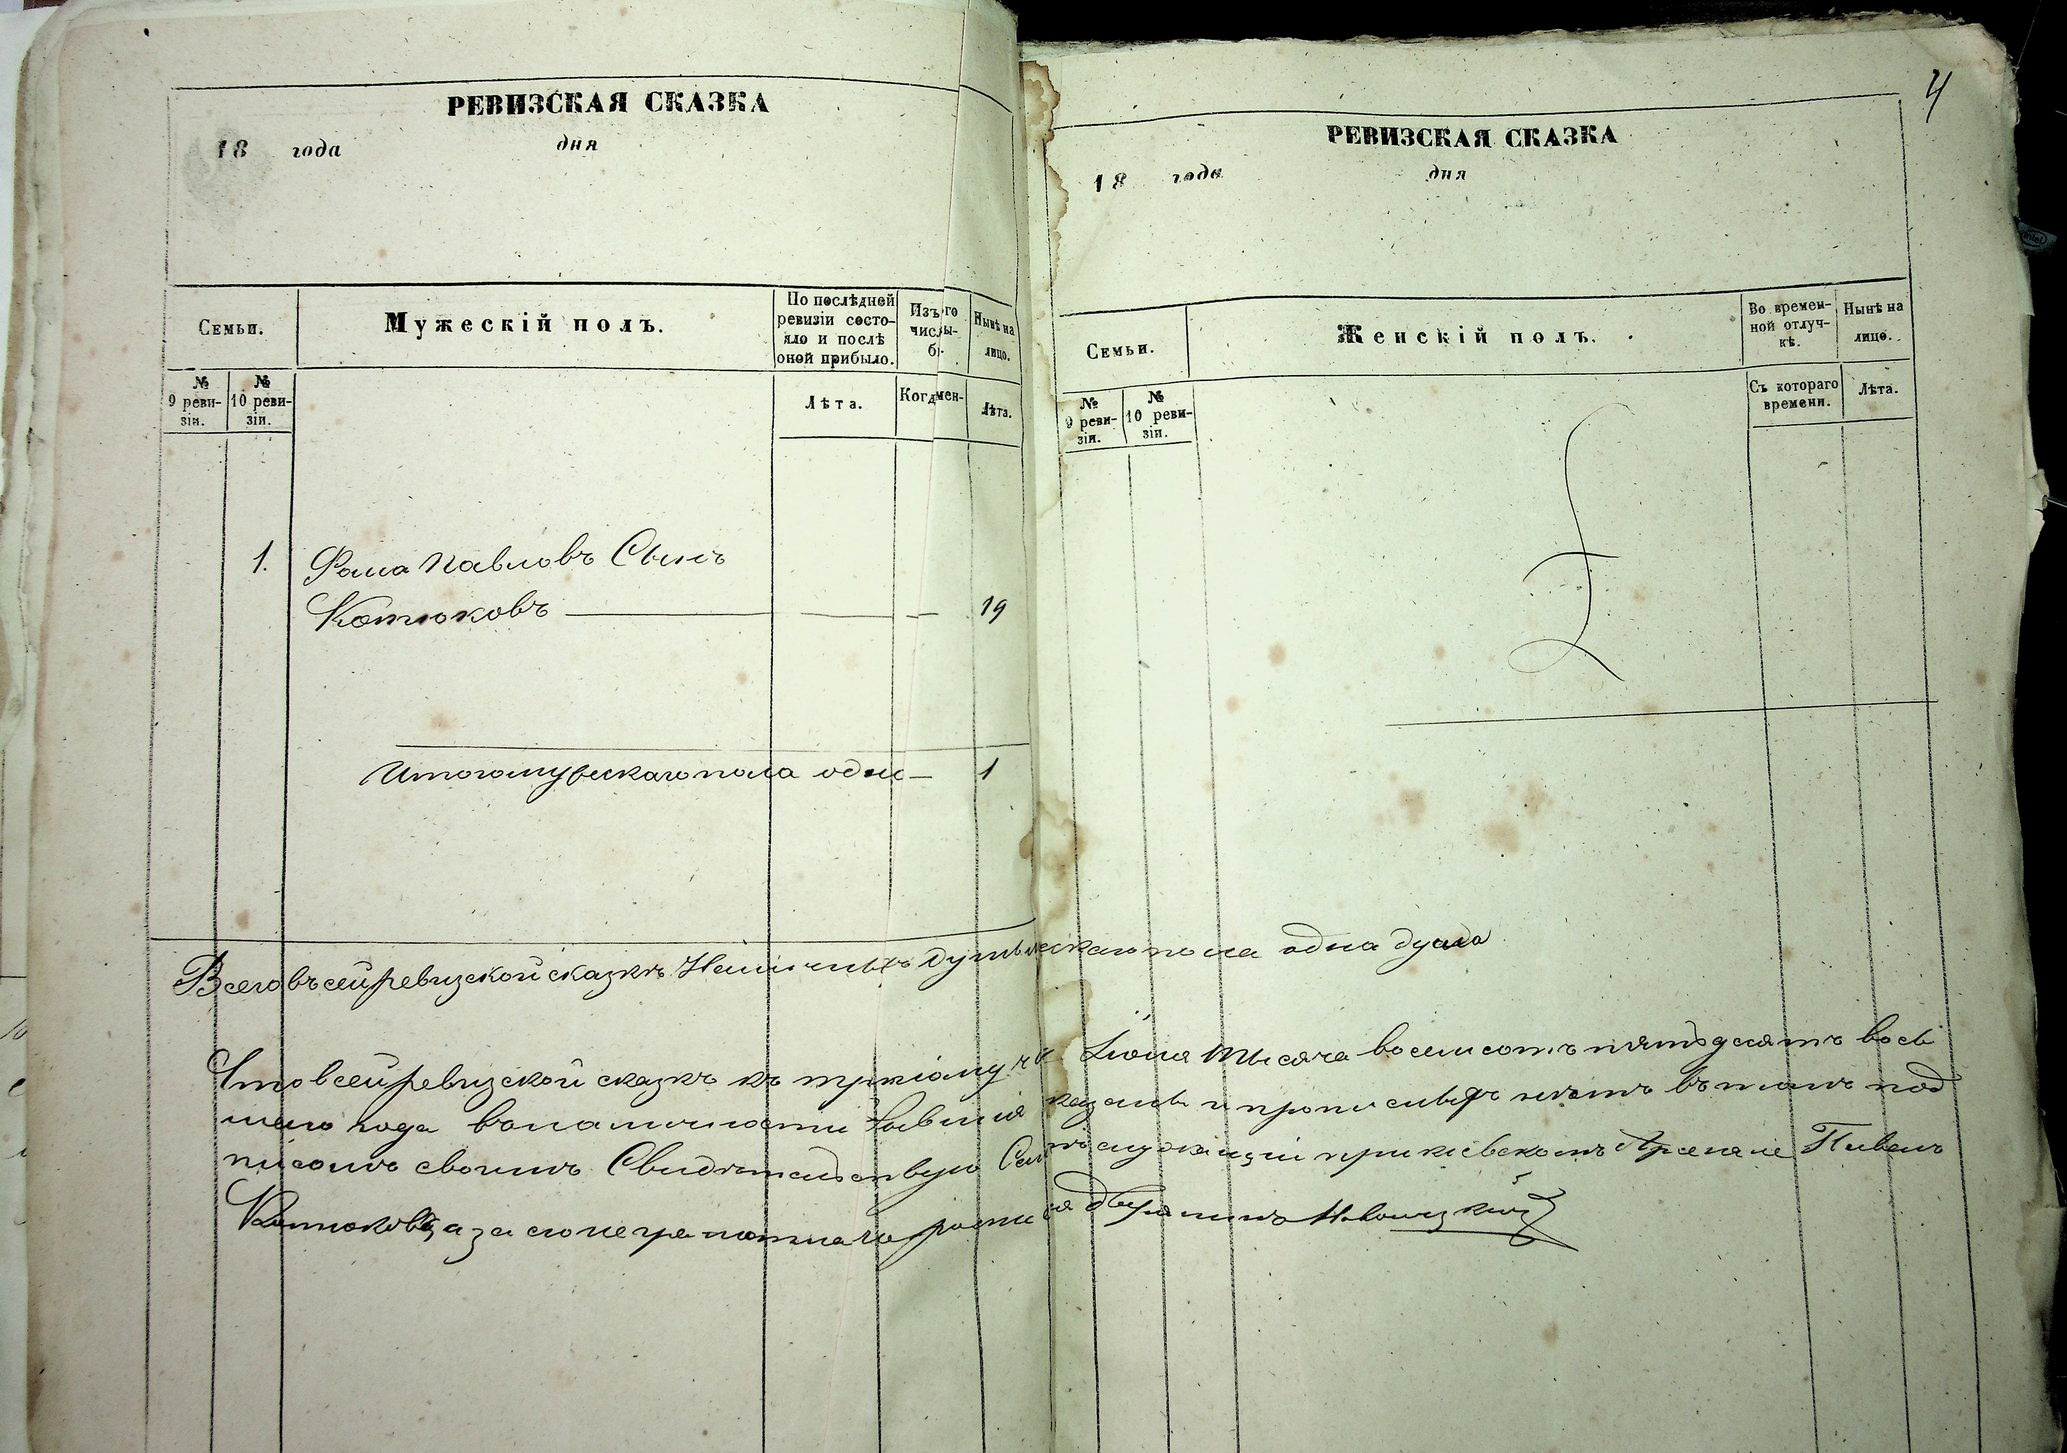 4
РЕВИЗСКАЯ СКАЗКА
18 года дня
Семьи.
Мужескій полъ.
По послѣдней ревизіи состояло и послѣ оной прибыло.
Нынѣ на лицо.
№ 9 ревизіи.
№ 10 ревизіи.
Лѣта.
Лѣта.
1. Фома Павловъ Сынъ
Котюковъ — — — 19
Итого мужескаго пола одна — 1
РЕВИЗСКАЯ СКАЗКА
18 года дня
Семьи.
Женскій полъ.
Во временной отлучкѣ.
Нынѣ на лицо.
№ 9 ревизіи.
№ 10 ревизіи.
Съ котораго времени.
Лѣта.
Всего въ сей ревизской сказкѣ Наличныхъ душъ мужескаго пола одна душа
Что в сей ревизской сказкѣ къ Іюня тысяча восемсотъ пятьдесятъ вось
маго года показаны и прописныхъ нѣтъ въ томъ под
писомъ своимъ Свидѣтельствую служащій при кіевскомъ Арсенале
Котюковъ, а за его неграмотнаго росписался дворянинъ